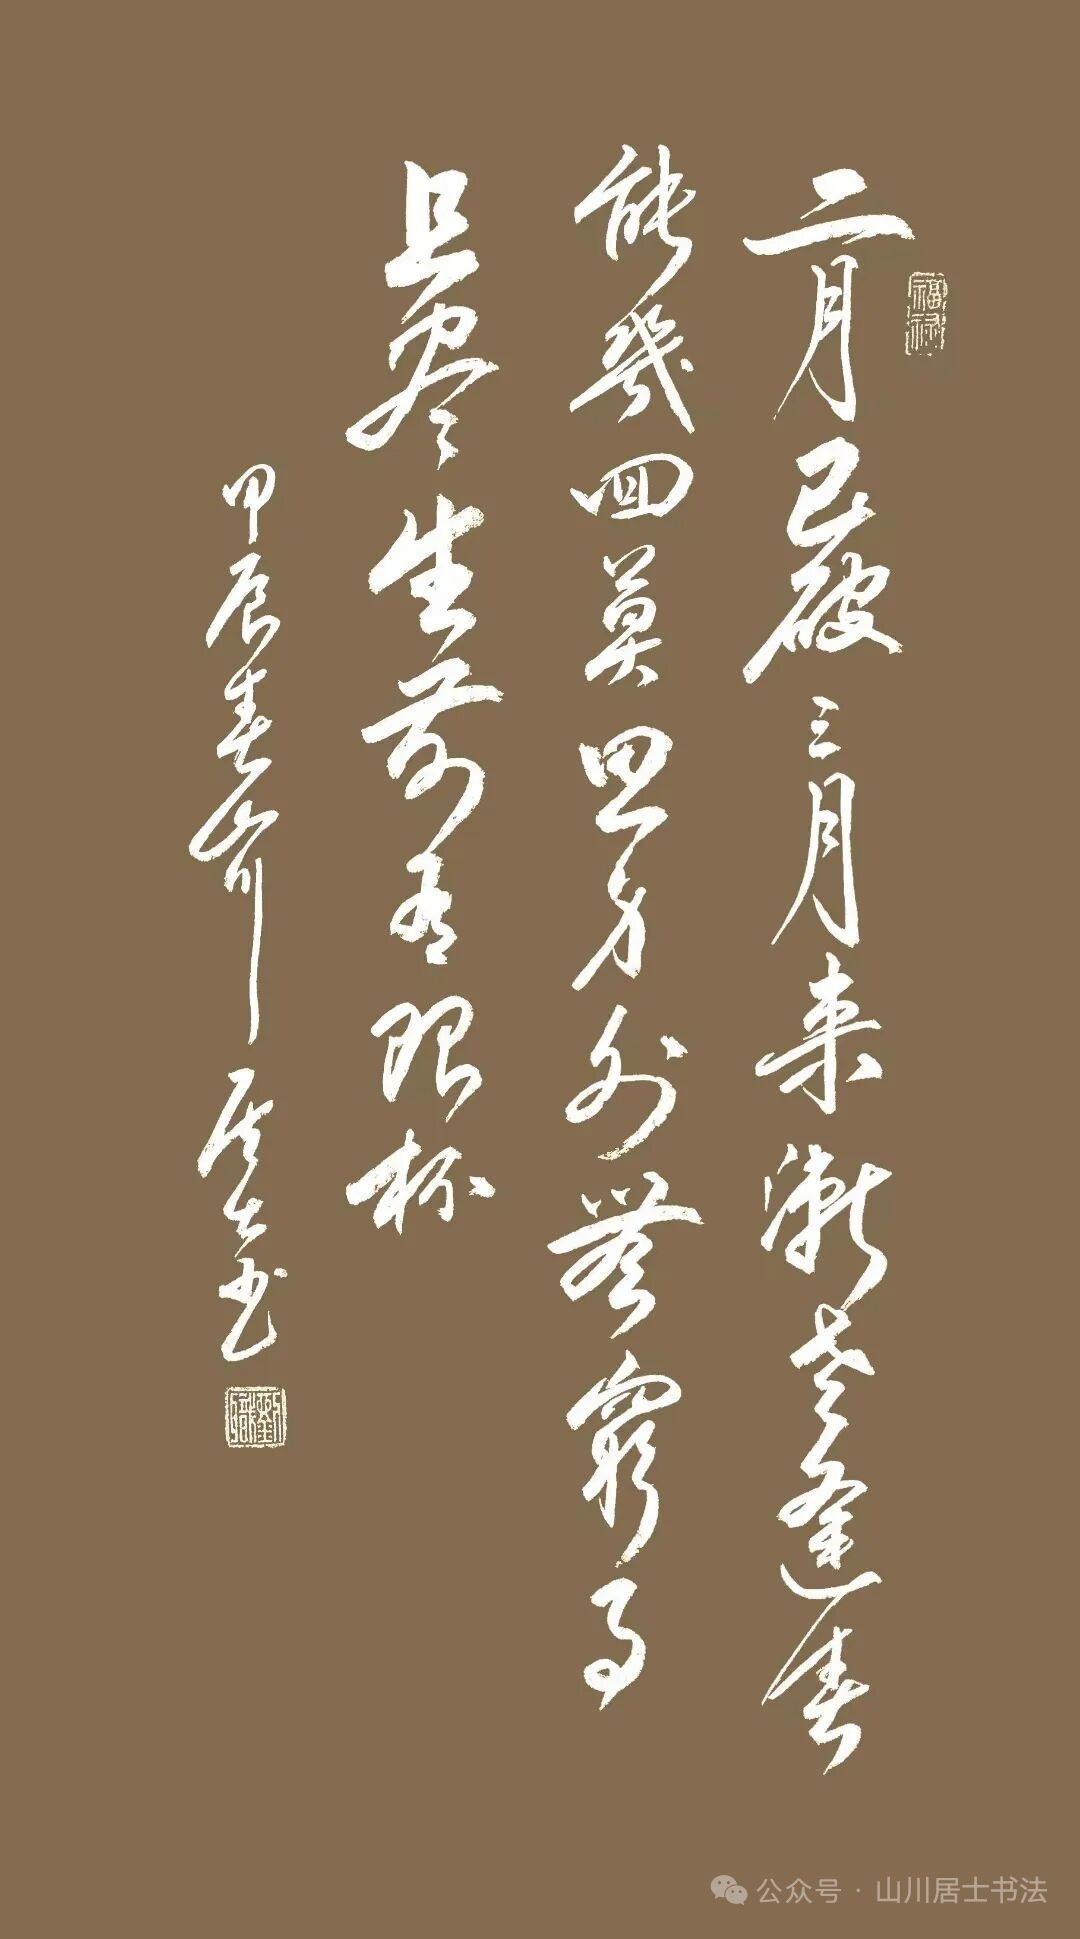 福禄
二月已破三月来漸老逢春
能幾回莫思身外無窮事
且尽生前有限杯
甲辰春山川居士书
公众号·山川居士书法